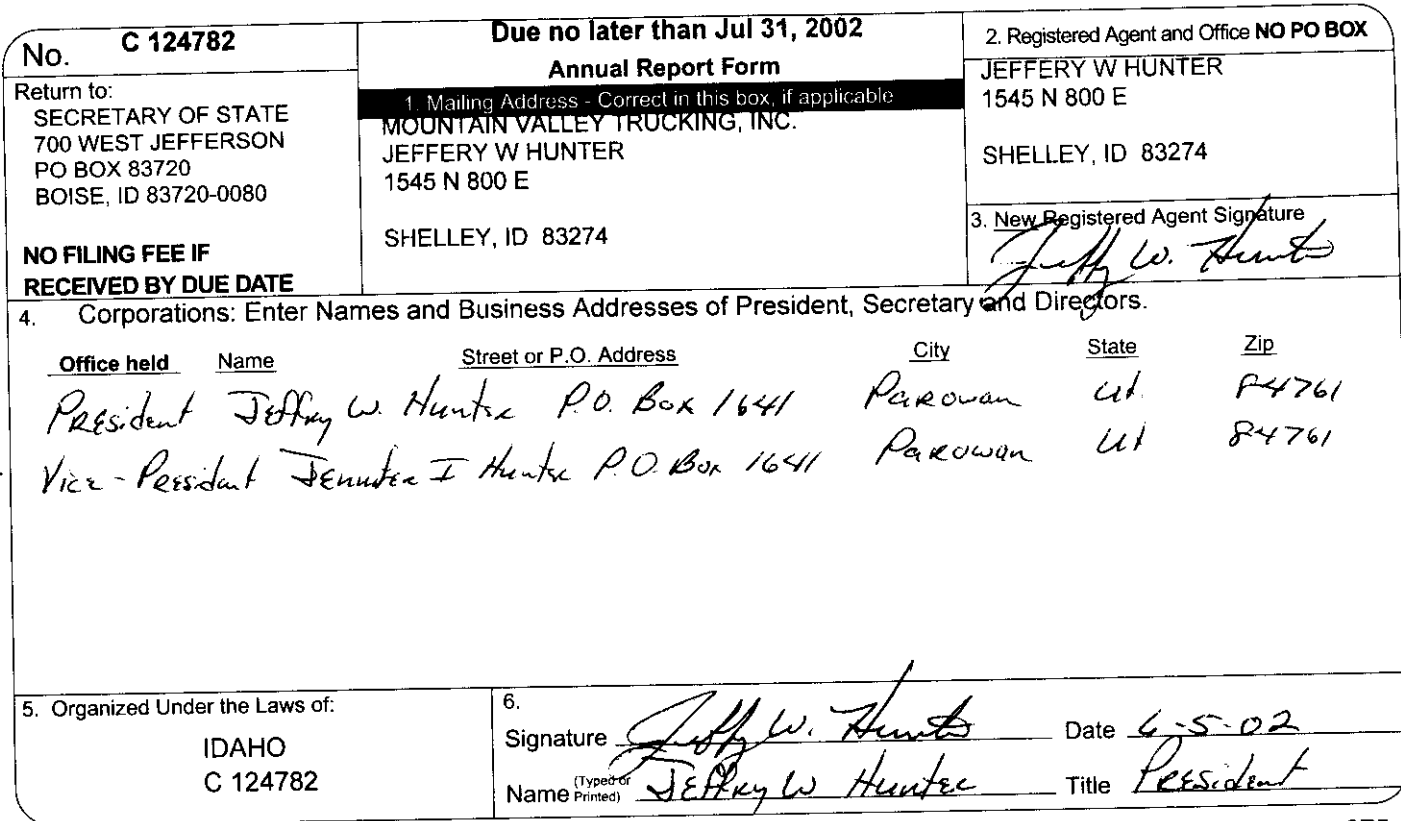 No. C 124782
Return to:
SECRETARY OF STATE
700 WEST JEFFERSON
PO BOX 83720
BOISE, ID 83720-0080
NO FILING FEE IF
RECEIVED BY DUE DATE
Due no later than Jul 31, 2002
Annual Report Form
1. Mailing Address - Correct in this box, if applicable
MOUNTAIN VALLEY TRUCKING, INC.
JEFFERY W HUNTER
1545 N 800 E
SHELLEY, ID 83274
2. Registered Agent and Office NO PO BOX
JEFFERY W HUNTER
1545 N 800 E
SHELLEY, ID 83274
3. New Registered Agent Signature
W. Hunter
4. Corporations: Enter Names and Business Addresses of President, Secretary and Directors.
Office held Name Street or P.O. Address City State Zip
President Jeffrey W. Hunter P.O. Box 1641 Parowan Ut. 84761
Vice-President I Hunter P.O. Box 1641 Parowan Ut 84761
5. Organized Under the Laws of:
IDAHO
C 124782
6.
Signature W. Hunter Date 6-5-02
Name (Typed or Printed) Jeffrey W Hunter Title President